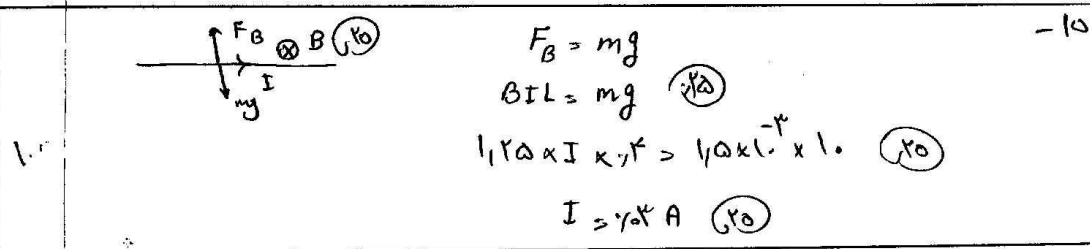 -۱۵
F_B ⊗ B ۰٫۲۵
I
mg
F_B = mg
BIL = mg ۰٫۲۵
۱,۲۵ × I × ۰٫۴ = ۱,۵×۱۰⁻³ × ۱۰ ۰٫۲۵
I = ۰٫۰۳ A ۰٫۲۵